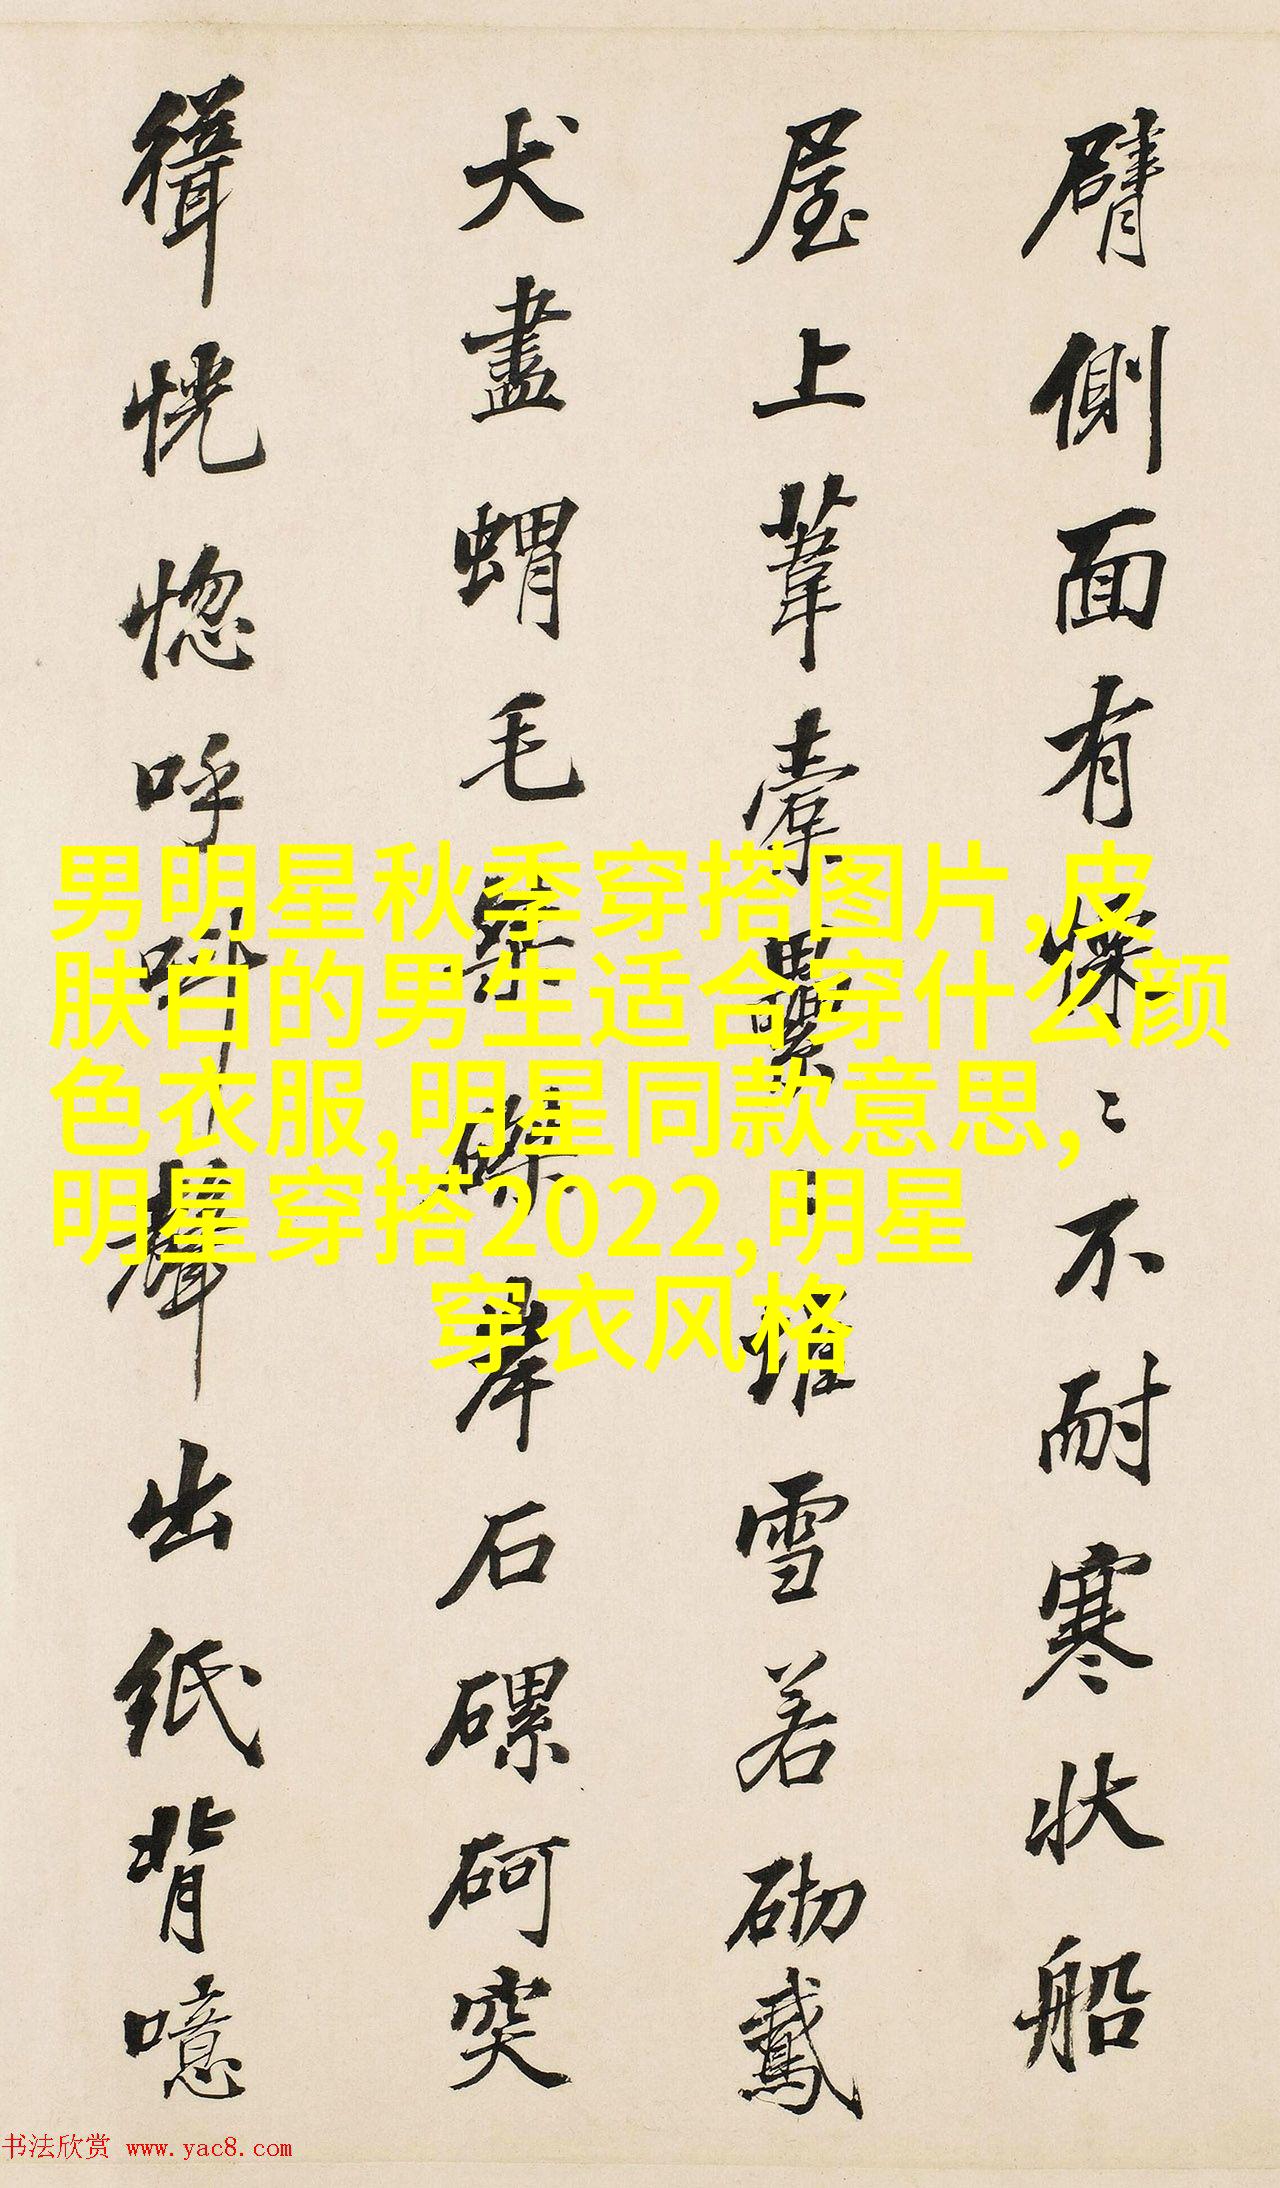 臂側面有懍〻不耐寒狀船
屋上葦橐壘〻堆雪若砌鳶
犬盡蝟毛磔磔羣石磥砢突
緝恍惚呼叫聲出紙背噫
男明星秋季穿搭图片,皮
肤白的男生适合穿什么颜
色衣服,明星同款意思,
明星穿搭2022,明星
穿衣风格
书法欣赏 www.yac8.com